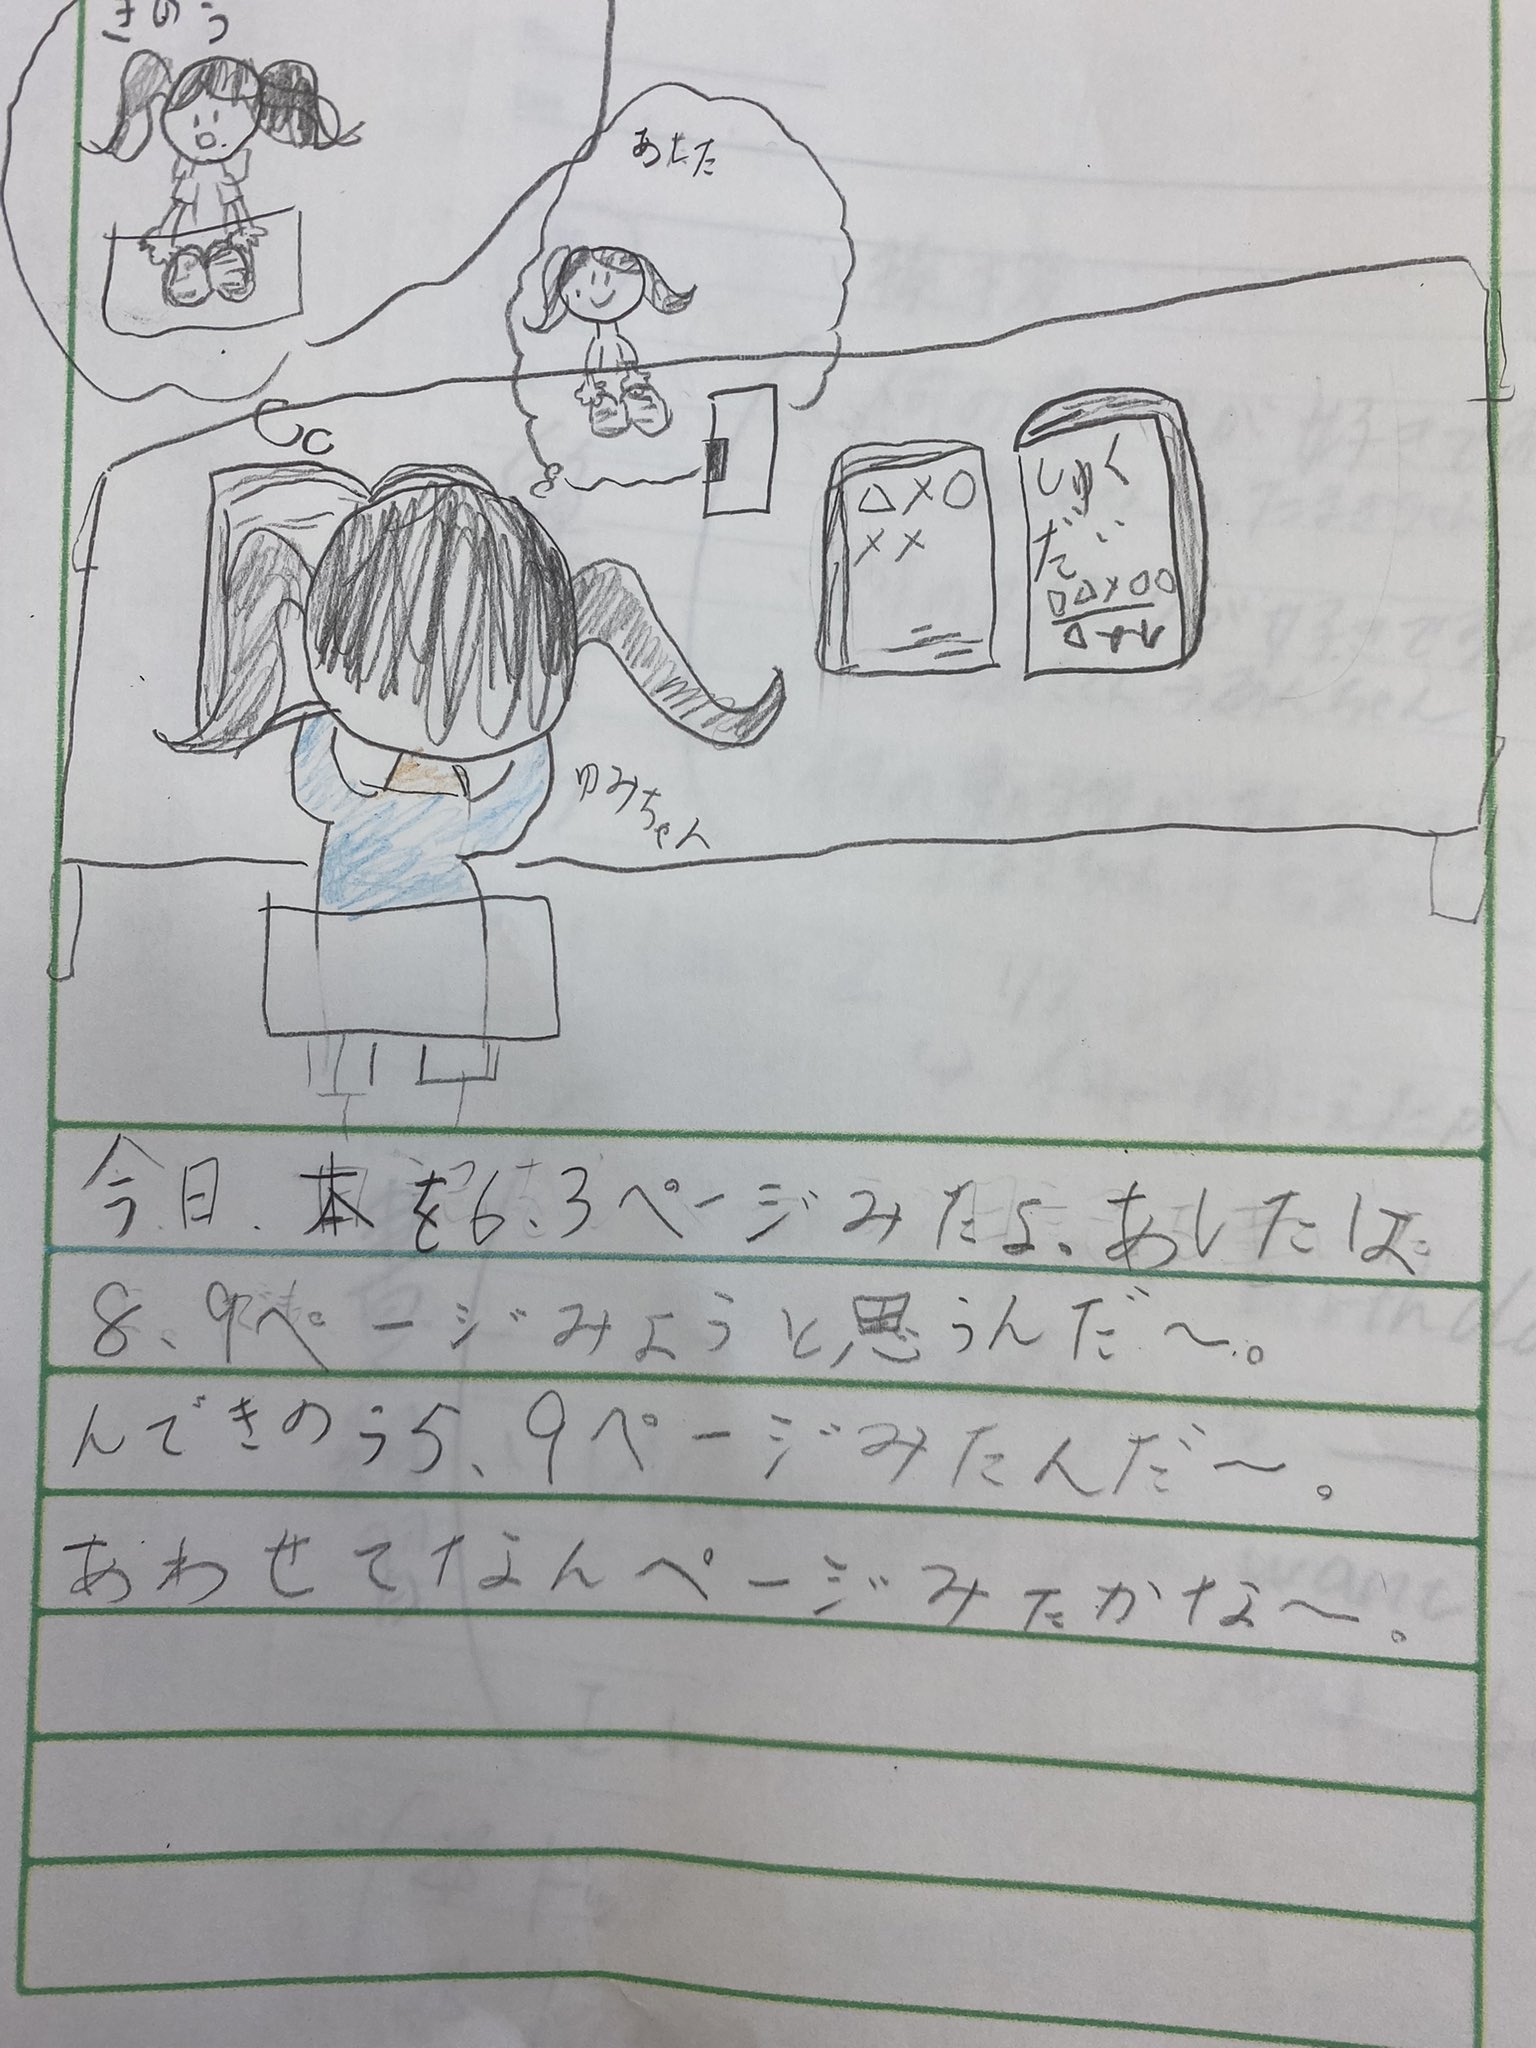 きのう
あした
しゅく
だい
ゆみちゃん
今日、本を6、3ページみたよ。あしたは
8、9ページみようと思うんだ～。
んできのう5、9ページみたんだ～。
あわせてなんページみたかな～。